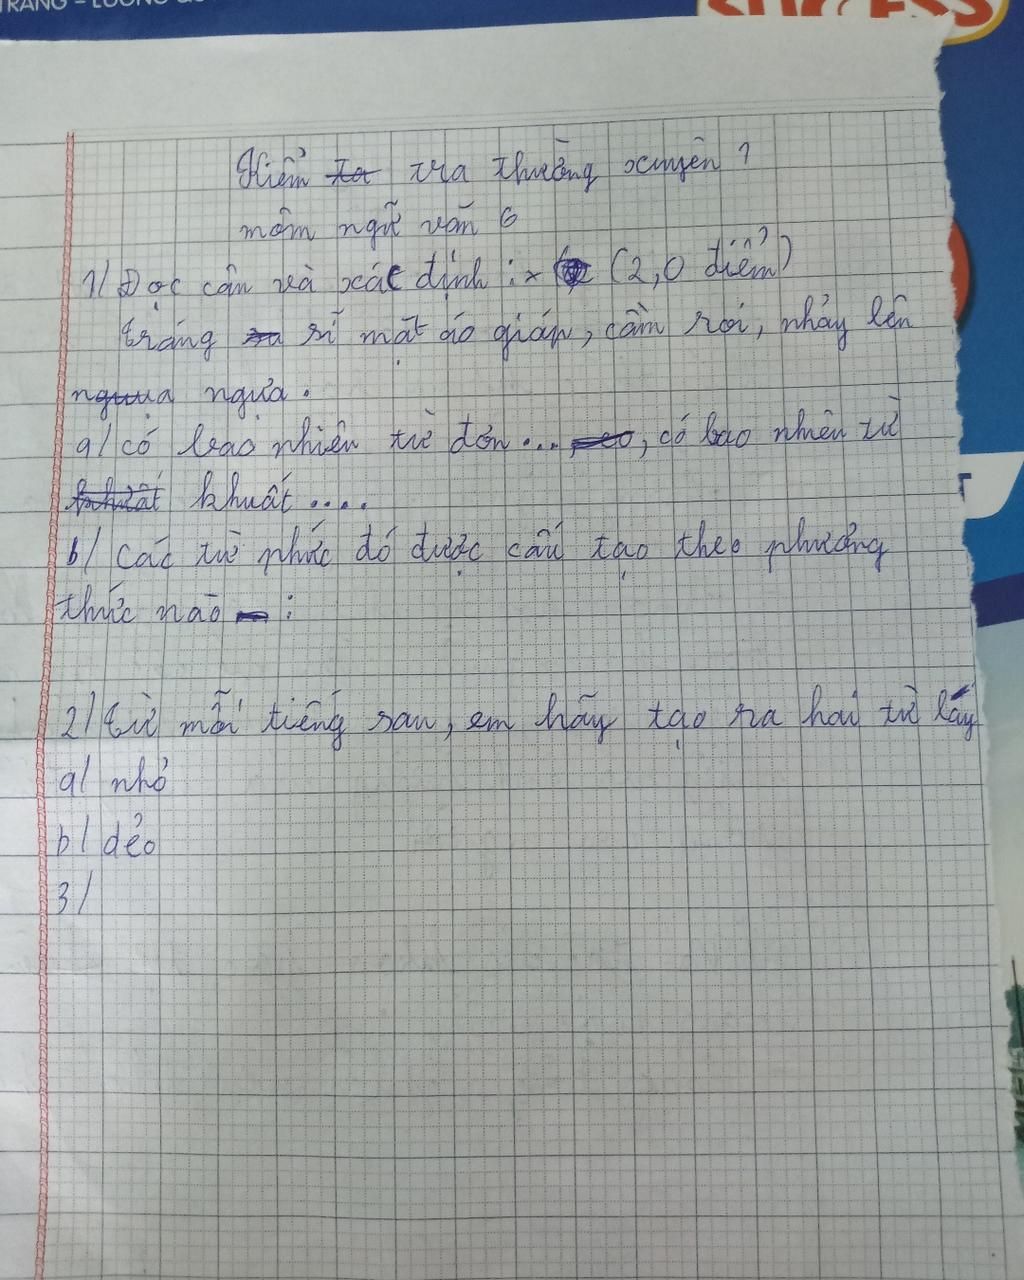 TRANG - LƯƠNG
SUCCESS
Kiểm tra thường xuyên 1
môm ngữ văn 6
1/ Đọc câu và xác định : (2,0 điểm)
tráng sĩ mặt áo giáp, cầm roi, nhảy lên
ngựa.
a/ có bao nhiên từ đơn..., có bao nhiên từ
khuất....
b/ các từ phức đó được cấu tạo theo phương
thức nào :
2/ từ mỗi tiếng sau, em hãy tạo ra hai từ láy
a/ nhỏ
b/ dẻo
3/